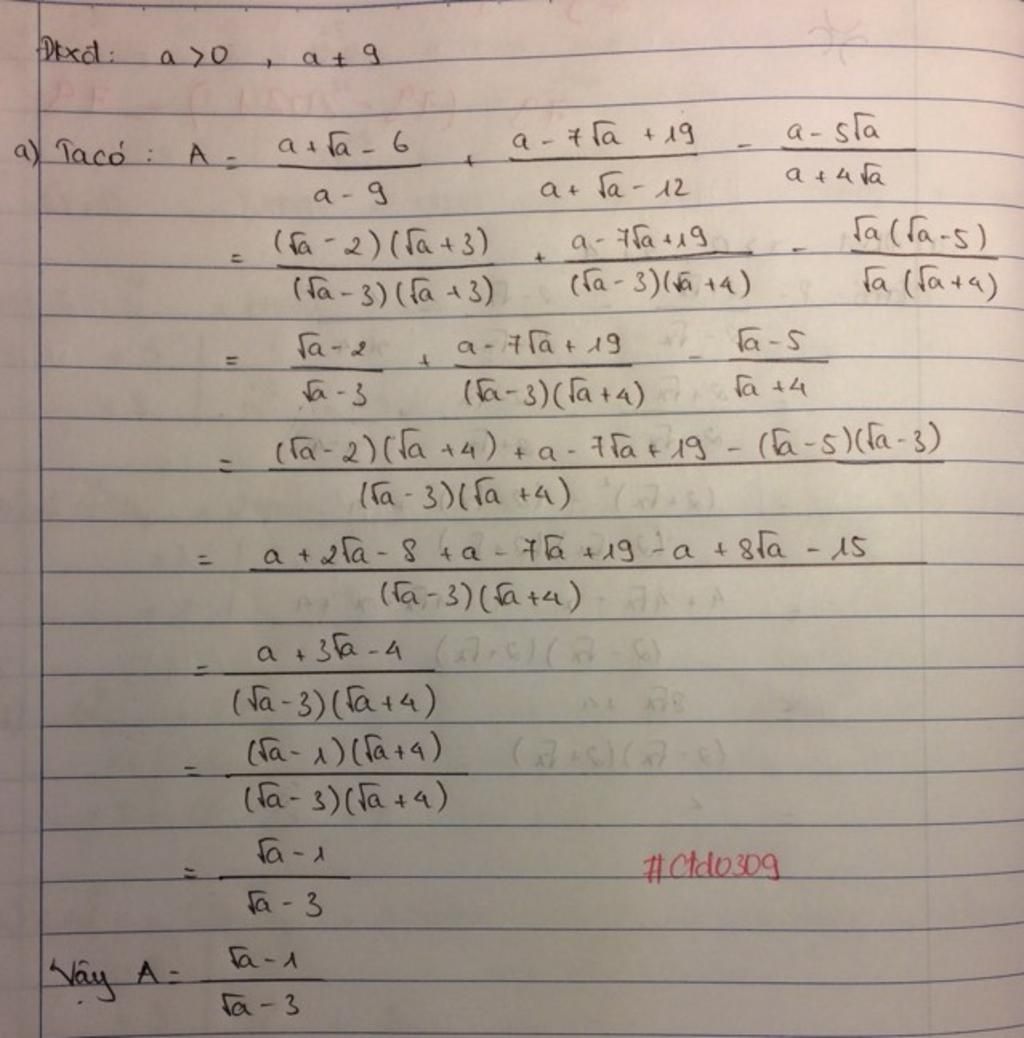 Đkxđ: a > 0 , a ≠ 9
a) Ta có: A = (a + √a - 6)/(a - 9) + (a - 7√a + 19)/(a + √a - 12) - (a - 5√a)/(a + 4√a)
= ((√a - 2)(√a + 3))/((√a - 3)(√a + 3)) + (a - 7√a + 19)/((√a - 3)(√a + 4)) - (√a(√a - 5))/(√a(√a + 4))
= (√a - 2)/(√a - 3) + (a - 7√a + 19)/((√a - 3)(√a + 4)) - (√a - 5)/(√a + 4)
= ((√a - 2)(√a + 4) + a - 7√a + 19 - (√a - 5)(√a - 3))/((√a - 3)(√a + 4))
= (a + 2√a - 8 + a - 7√a + 19 - a + 8√a - 15)/((√a - 3)(√a + 4))
= (a + 3√a - 4)/((√a - 3)(√a + 4))
= ((√a - 1)(√a + 4))/((√a - 3)(√a + 4))
= (√a - 1)/(√a - 3)
#Ctd0309
Vậy A = (√a - 1)/(√a - 3)